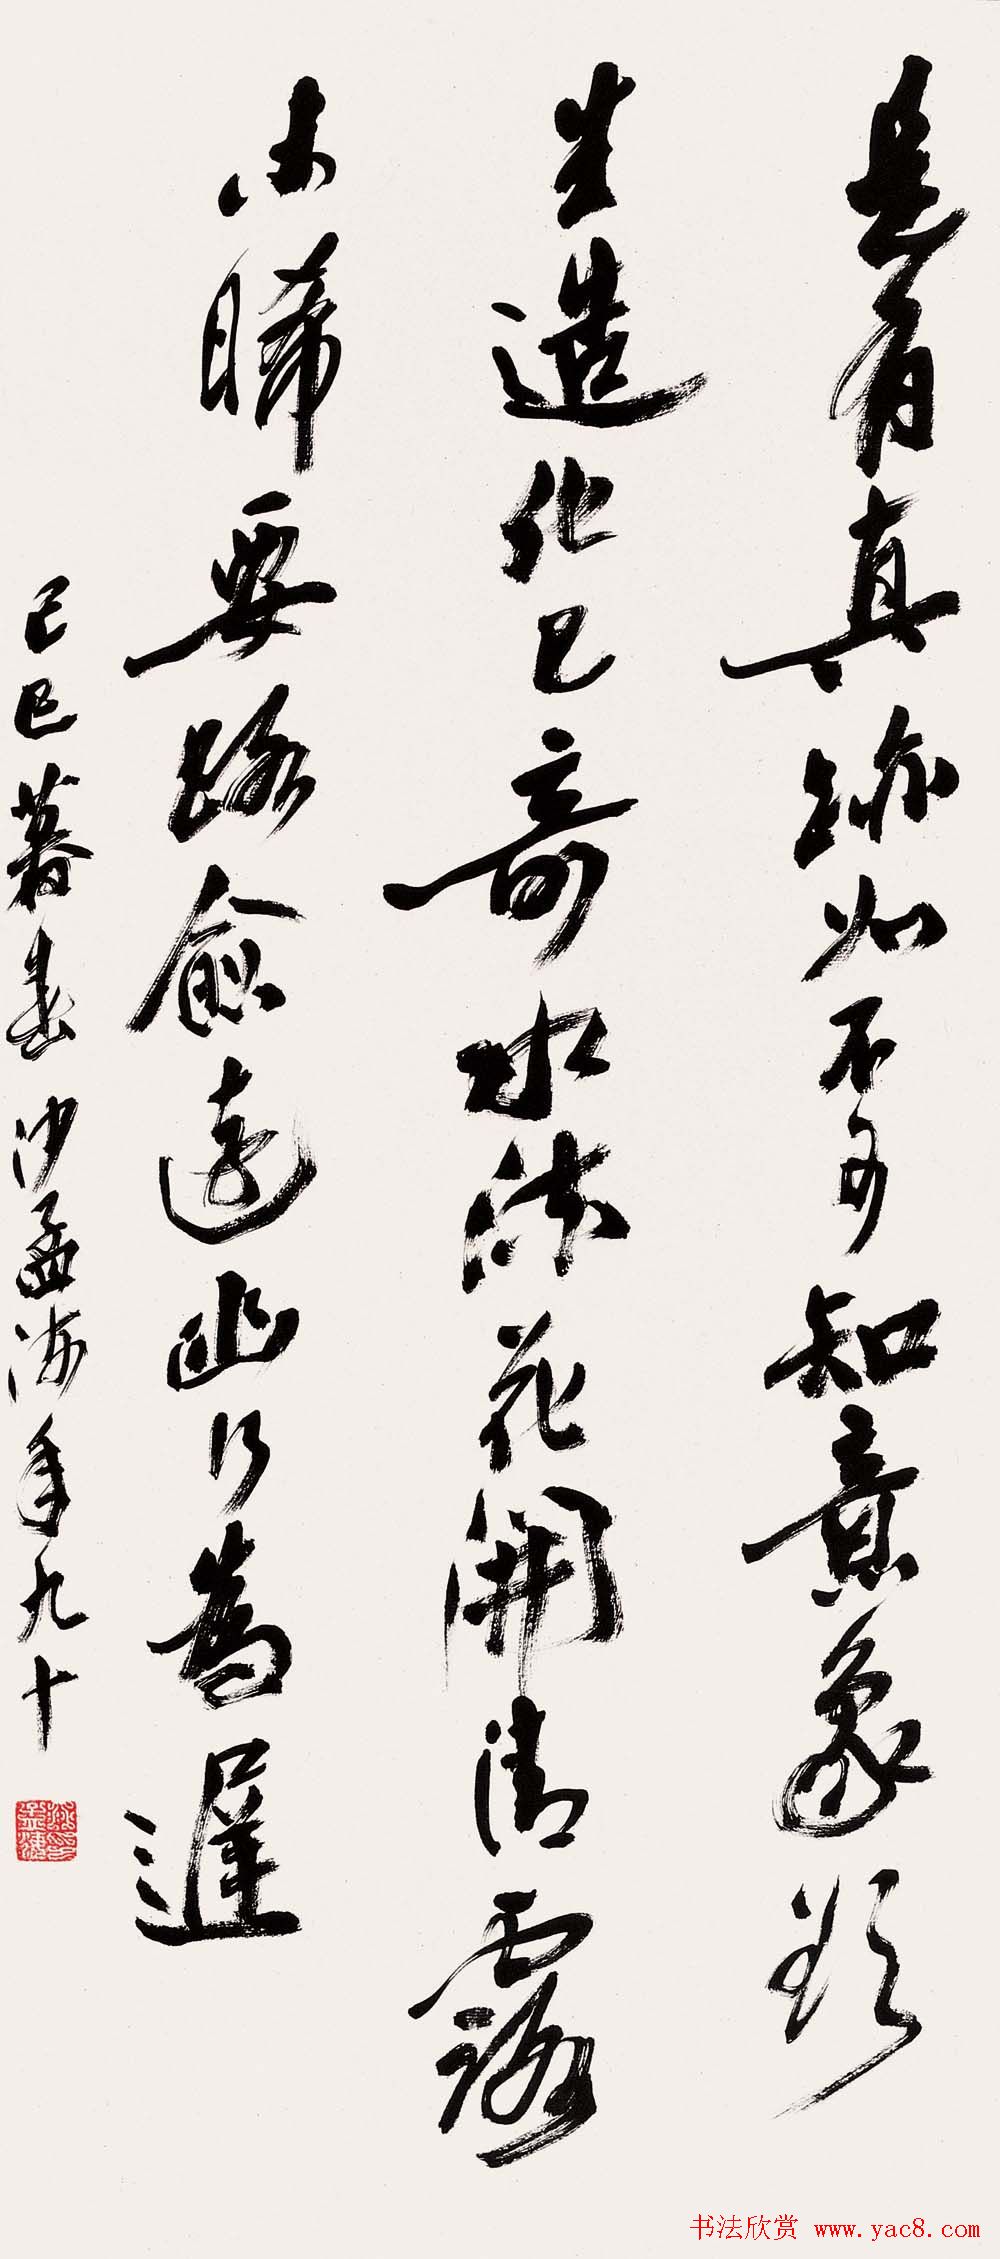 是有真跡如不可知意象欲
生造化已奇水流花開清露
未晞要路愈遠幽行為遲
己巳暮春沙孟海年九十
书法欣赏 www.yac8.com